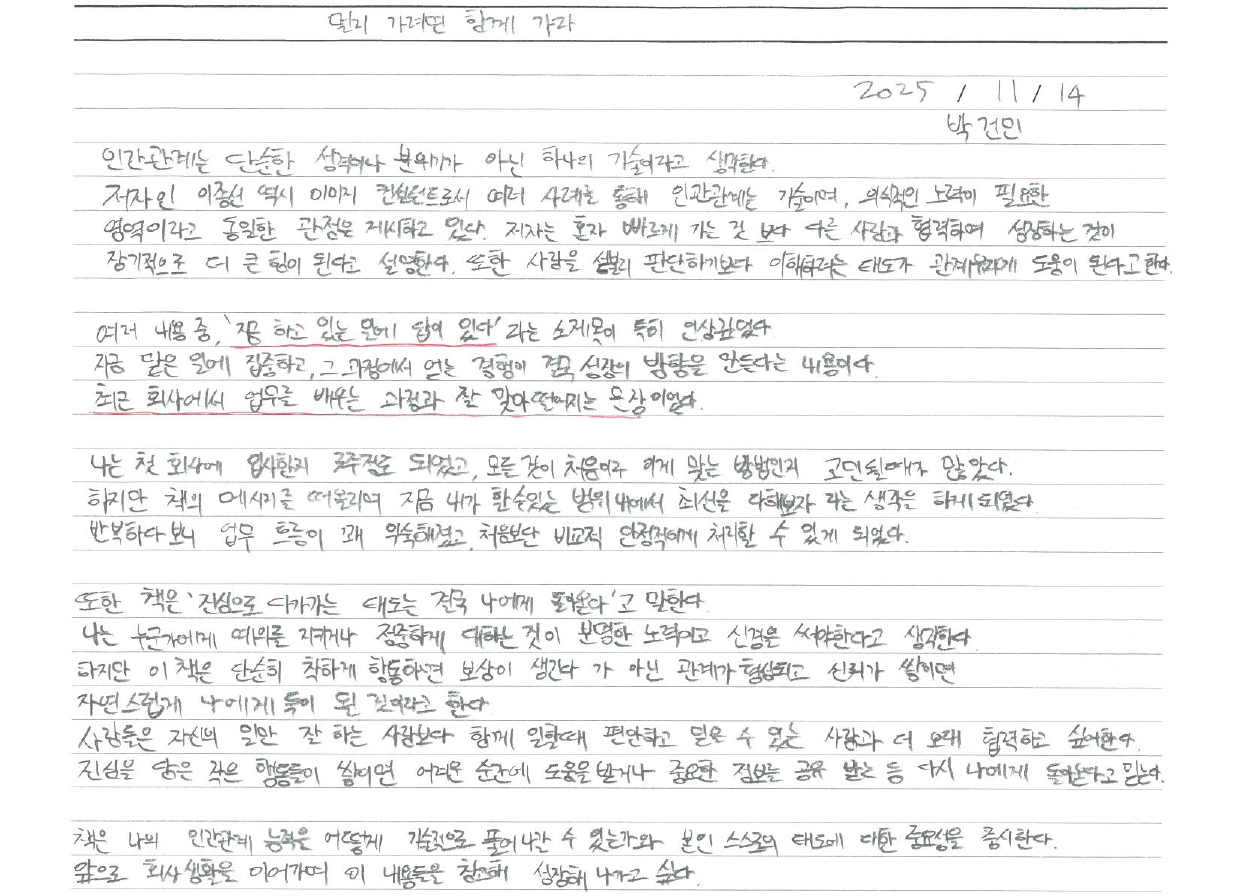 멀리 가려면 함께 가라
2025 / 11 / 14
박건민
인간관계는 단순한 성격이나 분위기가 아닌 하나의 기술이라고 생각한다.
저자인 이종선 역시 이미지 컨설턴트로서 여러 사례를 통해 인관관계는 기술이며, 의식적인 노력이 필요한
영역이라고 동일한 관점을 제시하고 있다. 저자는 혼자 빠르게 가는 것 보다 다른 사람과 협력하며 성장하는 것이
장기적으로 더 큰 힘이 된다고 설명한다. 또한 사람을 섣불리 판단하기보다 이해하려는 태도가 관계유지에 도움이 된다고 한다.
여러 내용 중, '지금 하고 있는 일에 답이 있다' 라는 소제목이 특히 인상깊었다
지금 맡은 일에 집중하고, 그 과정에서 얻는 경험이 결국 성장의 방향을 만든다는 내용이다.
최근 회사에서 업무를 배우는 과정과 잘 맞아떨어지는 문장이었다.
나는 첫 회사에 입사한지 고주정도 되었고, 모든 것이 처음이라 이게 맞는 방법인지 고민될때가 많았다.
하지만 책의 메시지를 떠올리며 지금 내가 할수있는 범위내에서 최선을 다해보자 라는 생각을 하게되었다
반복하다 보니 업무 흐름이 꽤 익숙해졌고, 처음보단 비교적 안정적이게 처리할 수 있게 되었다.
또한 책은 '진심으로 다가가는 태도는 결국 나에게 돌아온다'고 말한다
나는 누군가에게 예의를 지키거나 정중하게 대하는 것이 분명한 노력이고 신경을 써야한다고 생각한다
하지만 이 책은 단순히 착하게 행동하면 보상이 생긴다 가 아닌 관계가 형성되고 신뢰가 쌓이면
자연스럽게 나에게 득이 된 것이라고 한다
사람들은 자신의 일만 잘 하는 사람보다 함께 일할때 편안하고 믿을 수 있는 사람과 더 오래 협력하고 싶어한다.
진심을 담은 작은 행동들이 쌓이면 어려운 순간에 도움을 받거나 중요한 정보를 공유 받는 등 다시 나에게 돌아온다고 믿는다.
책은 나의 인간관계 능력을 어떻게 기술적으로 풀어나갈 수 있는가와 본인 스스로의 태도에 대한 중요성을 중시한다.
앞으로 회사생활을 이어가며 이 내용들을 참고해 성장해 나가고 싶다.